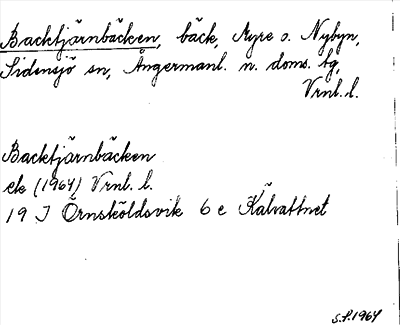 Backtjärnbäcken, bäck, Myre o. Nybyn,
Sidensjö sn, Ångermanl. n. doms. tg,
Vrnl. l.
Backtjärnbäcken
ek (1964) Vrnl. l.
19 J Örnsköldsvik 6 e Kälvattnet
S.F. 1964